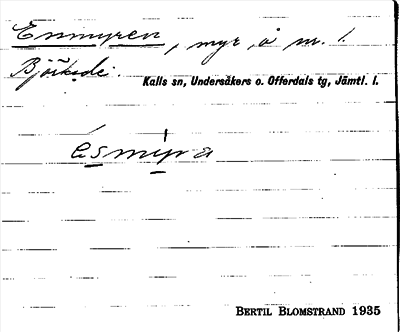 Enmyren, myr, å m. 1.
Björkede.
Kalls sn, Undersåkers o. Offerdals tg, Jämtl. l.
BERTIL BLOMSTRAND 1935